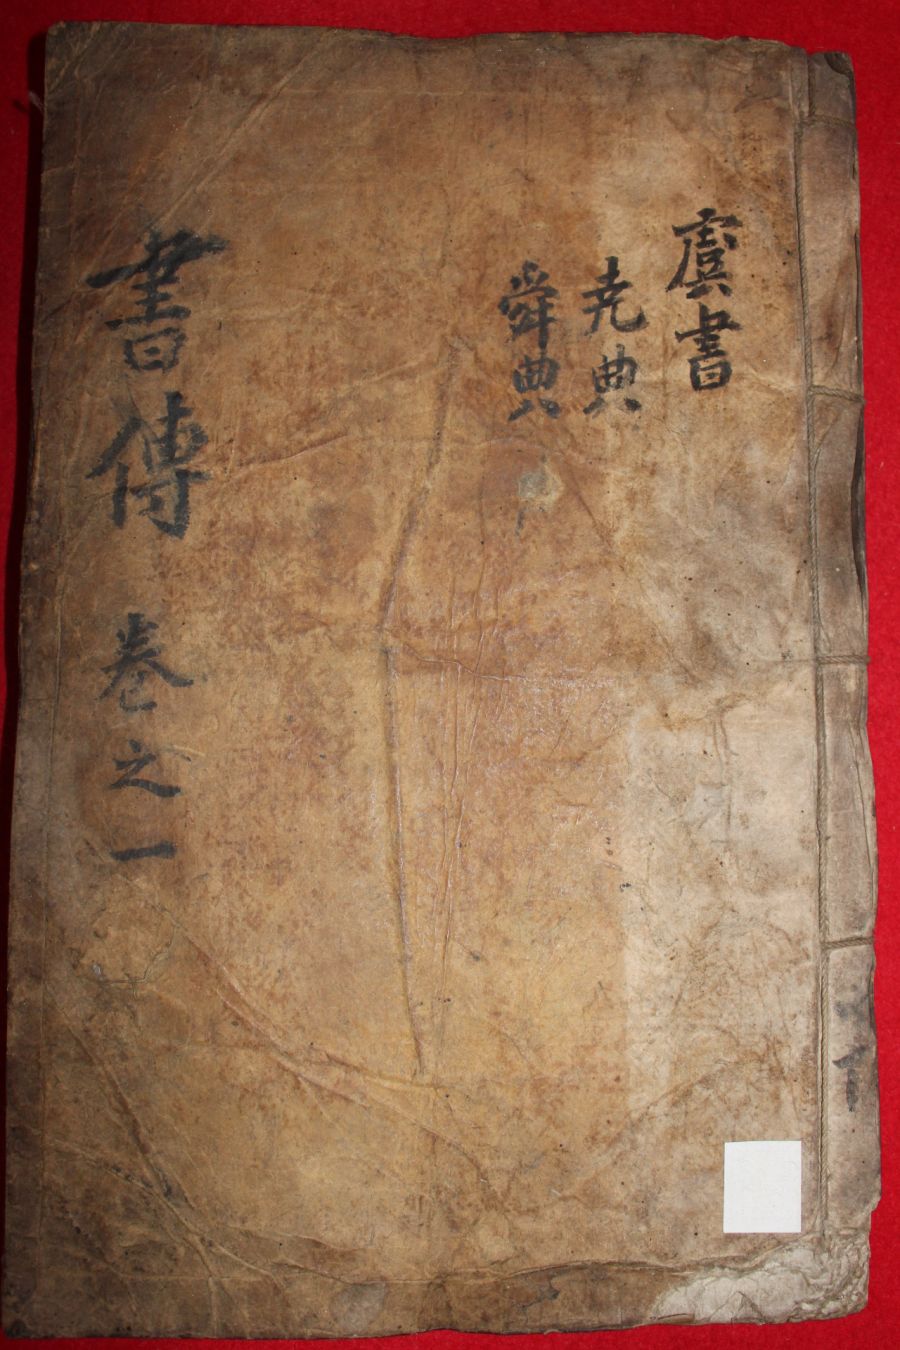 虞書
堯典
舜典
書傳 卷之一